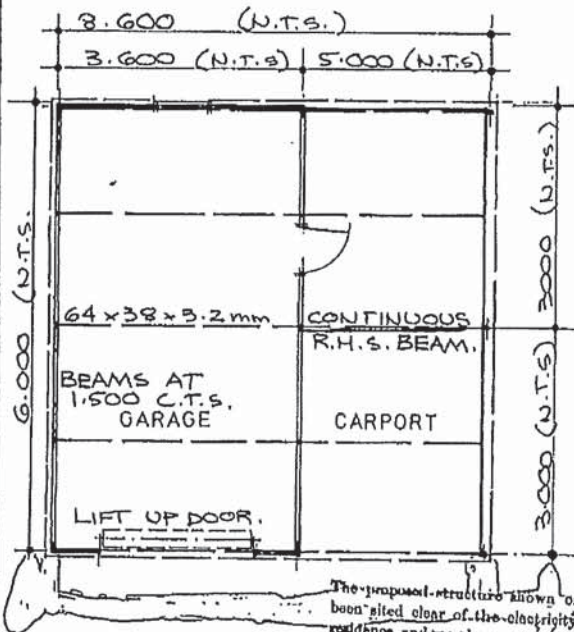 8.600 (N.T.S.)
3.600 (N.T.S) 5.000 (N.T.S)
6.000 (N.T.S.
3000 (N.T.S.)
64 x 38 x 3.2 mm CONTINUOUS
R.H.S. BEAM.
BEAMS AT
1.500 C.T.S.
GARAGE CARPORT
3.000 (N.T.S)
LIFT UP DOOR.
The proposed structure shown
been sited clear of the electricity